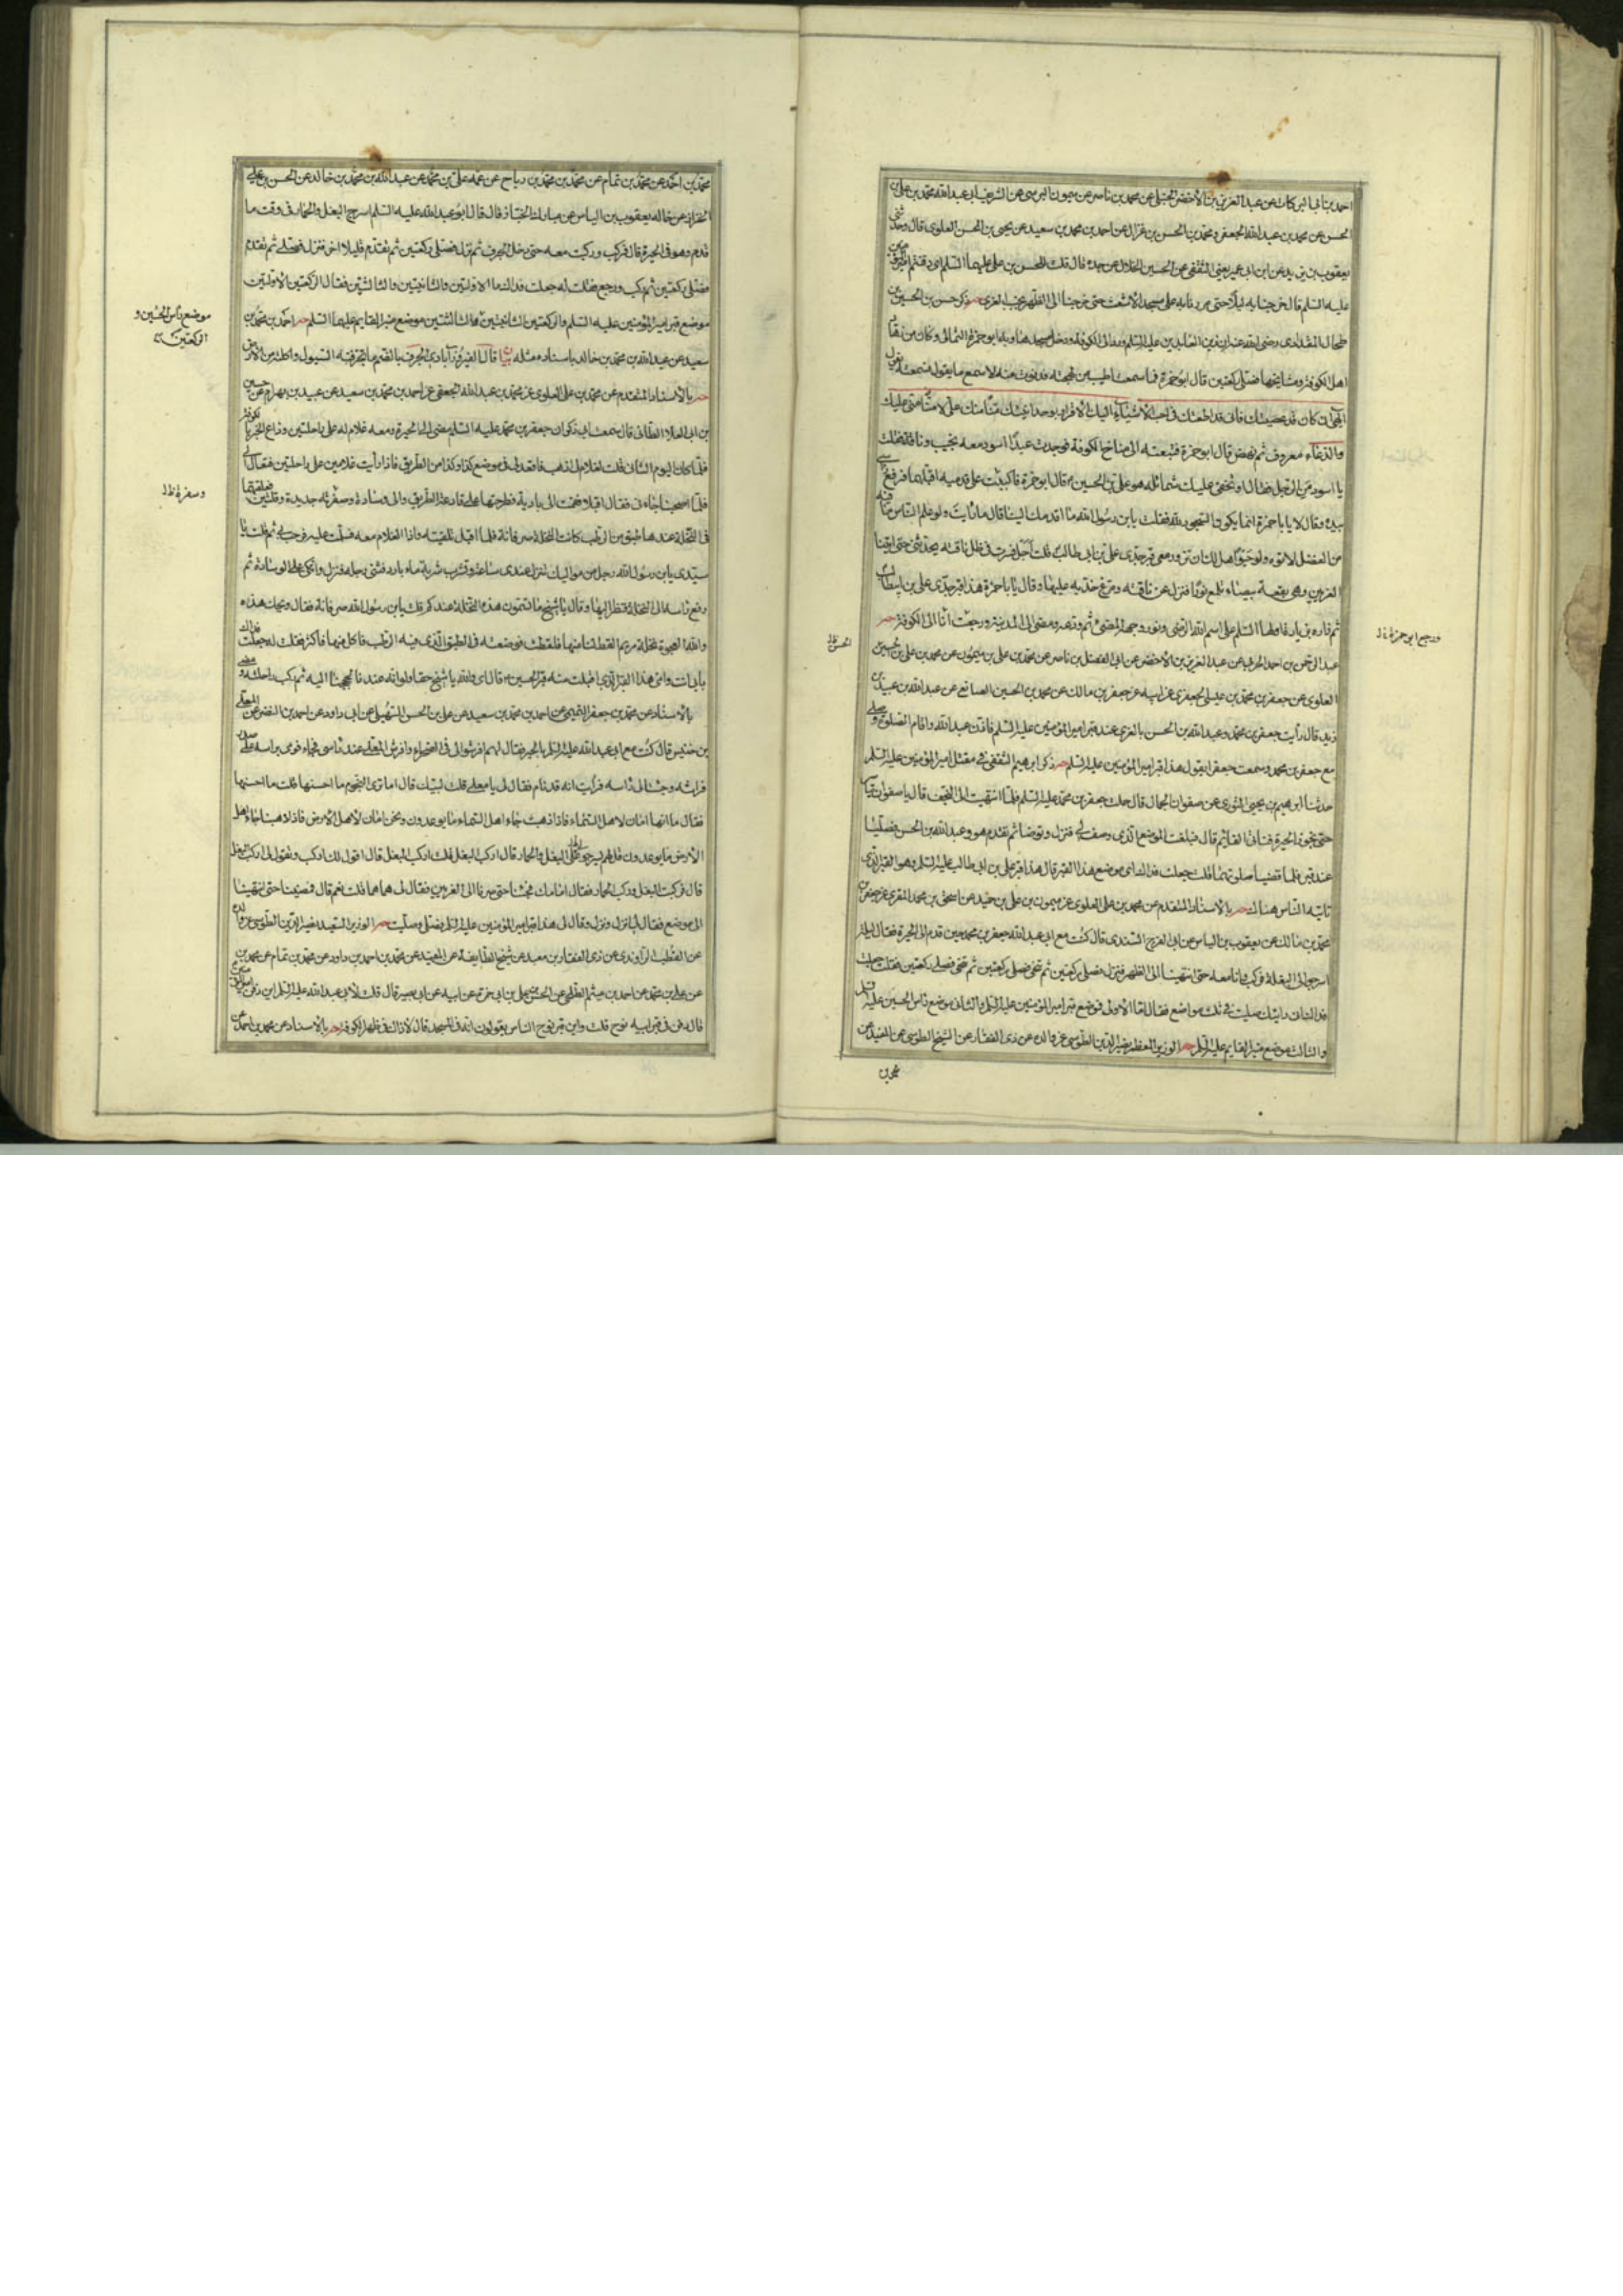 احمد بن ابى البركات عن عبد العزيز بن الأخضر الحنبلى عن محمد بن ناصر عن ميمون البرسى عن الشريف ابى عبد الله محمد بن على بن
الحسن عن محمد بن عبد الله الجعفى ومحمد بن الحسن بن غزال عن احمد بن محمد بن سعيد عن يحيى بن الحسن العلوى قال وحدثنى
يعقوب بن يزيد عن ابن ابى عمير عن الثقفى عن الحسين الخلال عن جده قال قلت للحسن بن على عليهما السلم اين دفنتم امير المؤمنين
عليه السلم قال خرجنا به ليلا حتى مررنا به على مسجد الاشعث حتى خرجنا الى الظهر بجنب الغرى حه ذكر حسن بن الحسين بن
طحال المقدادى رضى الله عنه ان زين العابدين عليه السلم ورد الى الكوفة ودخل مسجدها وبه ابو حمزة الثمالى وكان من زهاد
اهل الكوفة ومشايخها فصلى ركعتين قال ابو حمزة فما سمعت اطيب من لهجته فدنوت منه لاسمع ما يقول فسمعته يقول
الهى ان كان قد عصيتك فانى قد اطعتك فى احب الأشياء اليك الأقرار بوحدانيتك منا منك على لا منا منى عليك
والدعاء معروف ثم نهض قال ابو حمزة فتبعته الى مناخ الكوفة فوجدت عبدا اسود معه نجيب وناقة فقلت
يا اسود من الرجل فقال او تخفى عليك شمائله هو على بن الحسين ع قال ابو حمزة فاكببت على قدميه اقبلهما فرفع راسى
بيده وقال لا يا با حمزة انما يكون السجود لله فقلت يا بن رسول الله ما اقدمك الينا قال ما رايت ولو علم الناس ما فيه
من الفضل لاتوه ولو حبوا هل لك ان تزور معى قبر جدى على بن ابى طالب قلت اجل فسرت فى ظل ناقته يحدثنى حتى اتينا
الغريين وهى بقعة بيضاء تلمع نورا فنزل عن ناقته ومرغ خديه عليها وقال يا با حمزة هذا قبر جدى على بن ابيطالب
ثم زاره بزيارة اولها السلم على اسم الله الرضى ونور وجهه المضئ ثم ودعه ومضى الى المدينة ورجعت انا الى الكوفة حه
ورجع ابو حمزة خ ل
عبد الرحمن بن احمد الحربى عن عبد العزيز بن الأخضر عن ابى الفضل بن ناصر عن محمد بن على بن ميمون عن محمد بن على بن حسين
الحسن ظ
العلوى عن جعفر بن محمد بن عيسى الجعفرى عن ابيه عن جعفر بن مالك عن محمد بن الحسين الصائغ عن عبد الله بن عبيد بن
زيد قال رأيت جعفر بن محمد وعبد الله بن الحسن بالغرى عند قبر امير المؤمنين عليه السلم فاذن عبد الله واقام الصلوة وصلى
مع جعفر بن محمد وسمعت جعفرا يقول هذا قبر امير المؤمنين عليه السلم حه ذكر ابرهيم الثقفى فى مقتل امير المؤمنين عليه السلم
حدثنا ابرهيم بن يحيى الثورى عن صفوان الجمال قال حملت جعفر بن محمد عليه السلم فلما انتهيت الى النجف قال يا صفوان تياسر
حتى تجوز الحيرة فتاتى القائم قال فبلغت الموضع الذى وصف لى فنزل وتوضا ثم تقدم هو وعبد الله بن الحسن فصليا
عند قبر فلما قضيا صلوتهما قلت جعلت فداك اى موضع هذا القبر قال هذا قبر على بن ابى طالب عليه السلم وهو القبر الذى
تاتيه الناس هناك حه بالاسناد المتقدم عن محمد بن على العلوى عن ميمون بن على بن حميد عن اسحق بن محمد المقرى عن جعفر بن
محمد بن مالك عن يعقوب بن الياس عن ابى الفرج السندى قال كنت مع ابى عبد الله جعفر بن محمد حين قدم الى الحيرة فقال ليلة
اسرجوا لى البغلة فركب وانا معه حتى انتهينا الى الظهر فنزل فصلى ركعتين ثم تنحى فصلى ركعتين ثم تنحى فصلى ركعتين فقلت جعلت
فداك انى رايتك صليت فى ثلث مواضع فقال اما الأولى فموضع قبر امير المؤمنين عليه السلم والثانى موضع راس الحسين عليه السلم
والثالث موضع منبر القايم عليه السلم حه الوزير المعظم نصير الدين الطوسى عن والده عن ذى الفقار عن الشيخ الطوسى عن المفيد عن
محمد بن
محمد بن احمد عن محمد بن تمام عن محمد بن محمد بن رباح عن عمه على بن محمد عن عبد الله بن محمد بن خالد عن الحسن بن على
الخزاز عن خاله يعقوب بن الياس عن مبارك الخباز قال قال ابو عبد الله عليه السلم اسرج البغل والحمار فى وقت ما
قدم وهو فى الحيرة قال فركب وركبت معه حتى دخل الجرف ثم نزل فصلى ركعتين ثم تقدم قليلا اخر فنزل فصلى ثم تقدم
فصلى ركعتين ثم ركب ورجع فقلت له جعلت فداك ما الاولتين والثانيتين والثالثتين فقال الركعتين الأولتين
موضع قبر امير المؤمنين عليه السلم والركعتين الثانيتين والثالثتين موضع منبر القايم عليهما السلم حه احمد بن محمد بن
موضع رأس الحسين و
الركعتين
سعيد عن عبد الله بن محمد بن خالد باسناده مثله بيان قال الفيروزآبادى الجرف بالضم ما تجرفته السيول واكلته من الأرض
حه بالأسناد المتقدم عن محمد بن على العلوى عن محمد بن عبد الله الجعفى عن احمد بن محمد بن سعيد عن عبيد بن بهرام عن حسين
بن ابى العلا الطائى قال سمعت ابى ذكر ان جعفر بن محمد عليه السلم مضى الى الحيرة ومعه غلام له على راحلتين وذاع الخبر بالكوفة
فلما كان اليوم الثانى قلت لغلام لى اذهب فاقعد لى فى موضع كذا وكذا من الطريق فاذا رأيت غلامين على راحلتين فتعال الى
فلما اصبحنا جاءنى فقال اقبلا فقمت الى بارية فطرحتها على قارعة الطريق والى وسادة وصفرته جديدة وقلتين فعلقتهما
وسفرة ظ ل
فى النخلة عندها طبق من الرطب كانت النخلة صرفانة فلما اقبل تلقيته واذا الغلام معه فسلمت عليه فرحب بى ثم قلت يا
سيدى يا بن رسول الله رجل من مواليك تنزل عندى ساعة وتشرب شربة ماء بارد فثنى رجله فنزل واتكى على الوسادة ثم
رفع راسه الى النخلة فنظر اليها وقال يا شيخ ما تسمون هذه النخلة عندكم قلت يا بن رسول الله صرفانة فقال ويحك هذه
والله العجوة نخلة مريم القط لنا منها فلقطت فوضعته فى الطبق الذى فيه الرطب فاكل منها فاكثر فقلت له جعلت فداك
بابى انت وامى هذا القبر الذى اقبلت منه قبر الحسين ع قال اى والله يا شيخ حقا ولو انه عندنا لحججنا اليه ثم ركب راحلته ومضى
بالاسناد عن محمد بن جعفر التميمى عن احمد بن محمد بن سعيد عن على بن الحسن عن ابى داود عن احمد بن النضر عن المعلى
بن خنيس قال كنت مع ابى عبد الله عليه السلم بالحيرة فقال لهم افرشوا لى فى الصحراء وافرش للمعلى عند راسى فجاء فرمى براسه على صدر
فراشه وجئت الى راسه فرأيت انه قد نام فقال لى يا معلى قلت لبيك قال اما ترى النجوم ما احسنها قلت ما احسنها
فقال ما انها امان لاهل السماء فاذا ذهبت جاء اهل السماء ما يوعدون ونحن امان لأهل الأرض فاذا ذهبنا جاء اهل
الأرض ما يوعدون قل لهم ليسرجوا البغل والحمار قال اركب البغل قلت اركب البغل قال اقول لك اركب وتقول لى اركب البغل
قال فركبت البغل وركب الحمار فقال امامك فجئنا حتى صرنا الى الغريين فقال لى هما هما قلت نعم قال فمضينا حتى انتهينا
الى موضع فقال لى انزل ونزل وقال لى هذا قبر امير المؤمنين عليه السلم فصلى وصليت حه الوزير السعيد نصير الدين الطوسى عن والده
عن القطب الراوندى عن ذى الفقار بن معبد عن شيخ الطايفة عن المفيد عن محمد بن احمد بن داود عن محمد بن تمام عن محمد بن محمد
عن على بن محمد عن احمد بن ميثم الطلحى عن الحسن بن على بن ابى حمزة عن ابيه عن ابى بصير قال قلت لأبى عبد الله عليه السلم اين دفن امير المؤمنين
قال دفن فى قبر ابيه نوح قلت واين قبر نوح الناس يقولون انه فى المسجد قال لا ذاك فى ظهر الكوفة حه بالأسناد عن محمد بن احمد عن